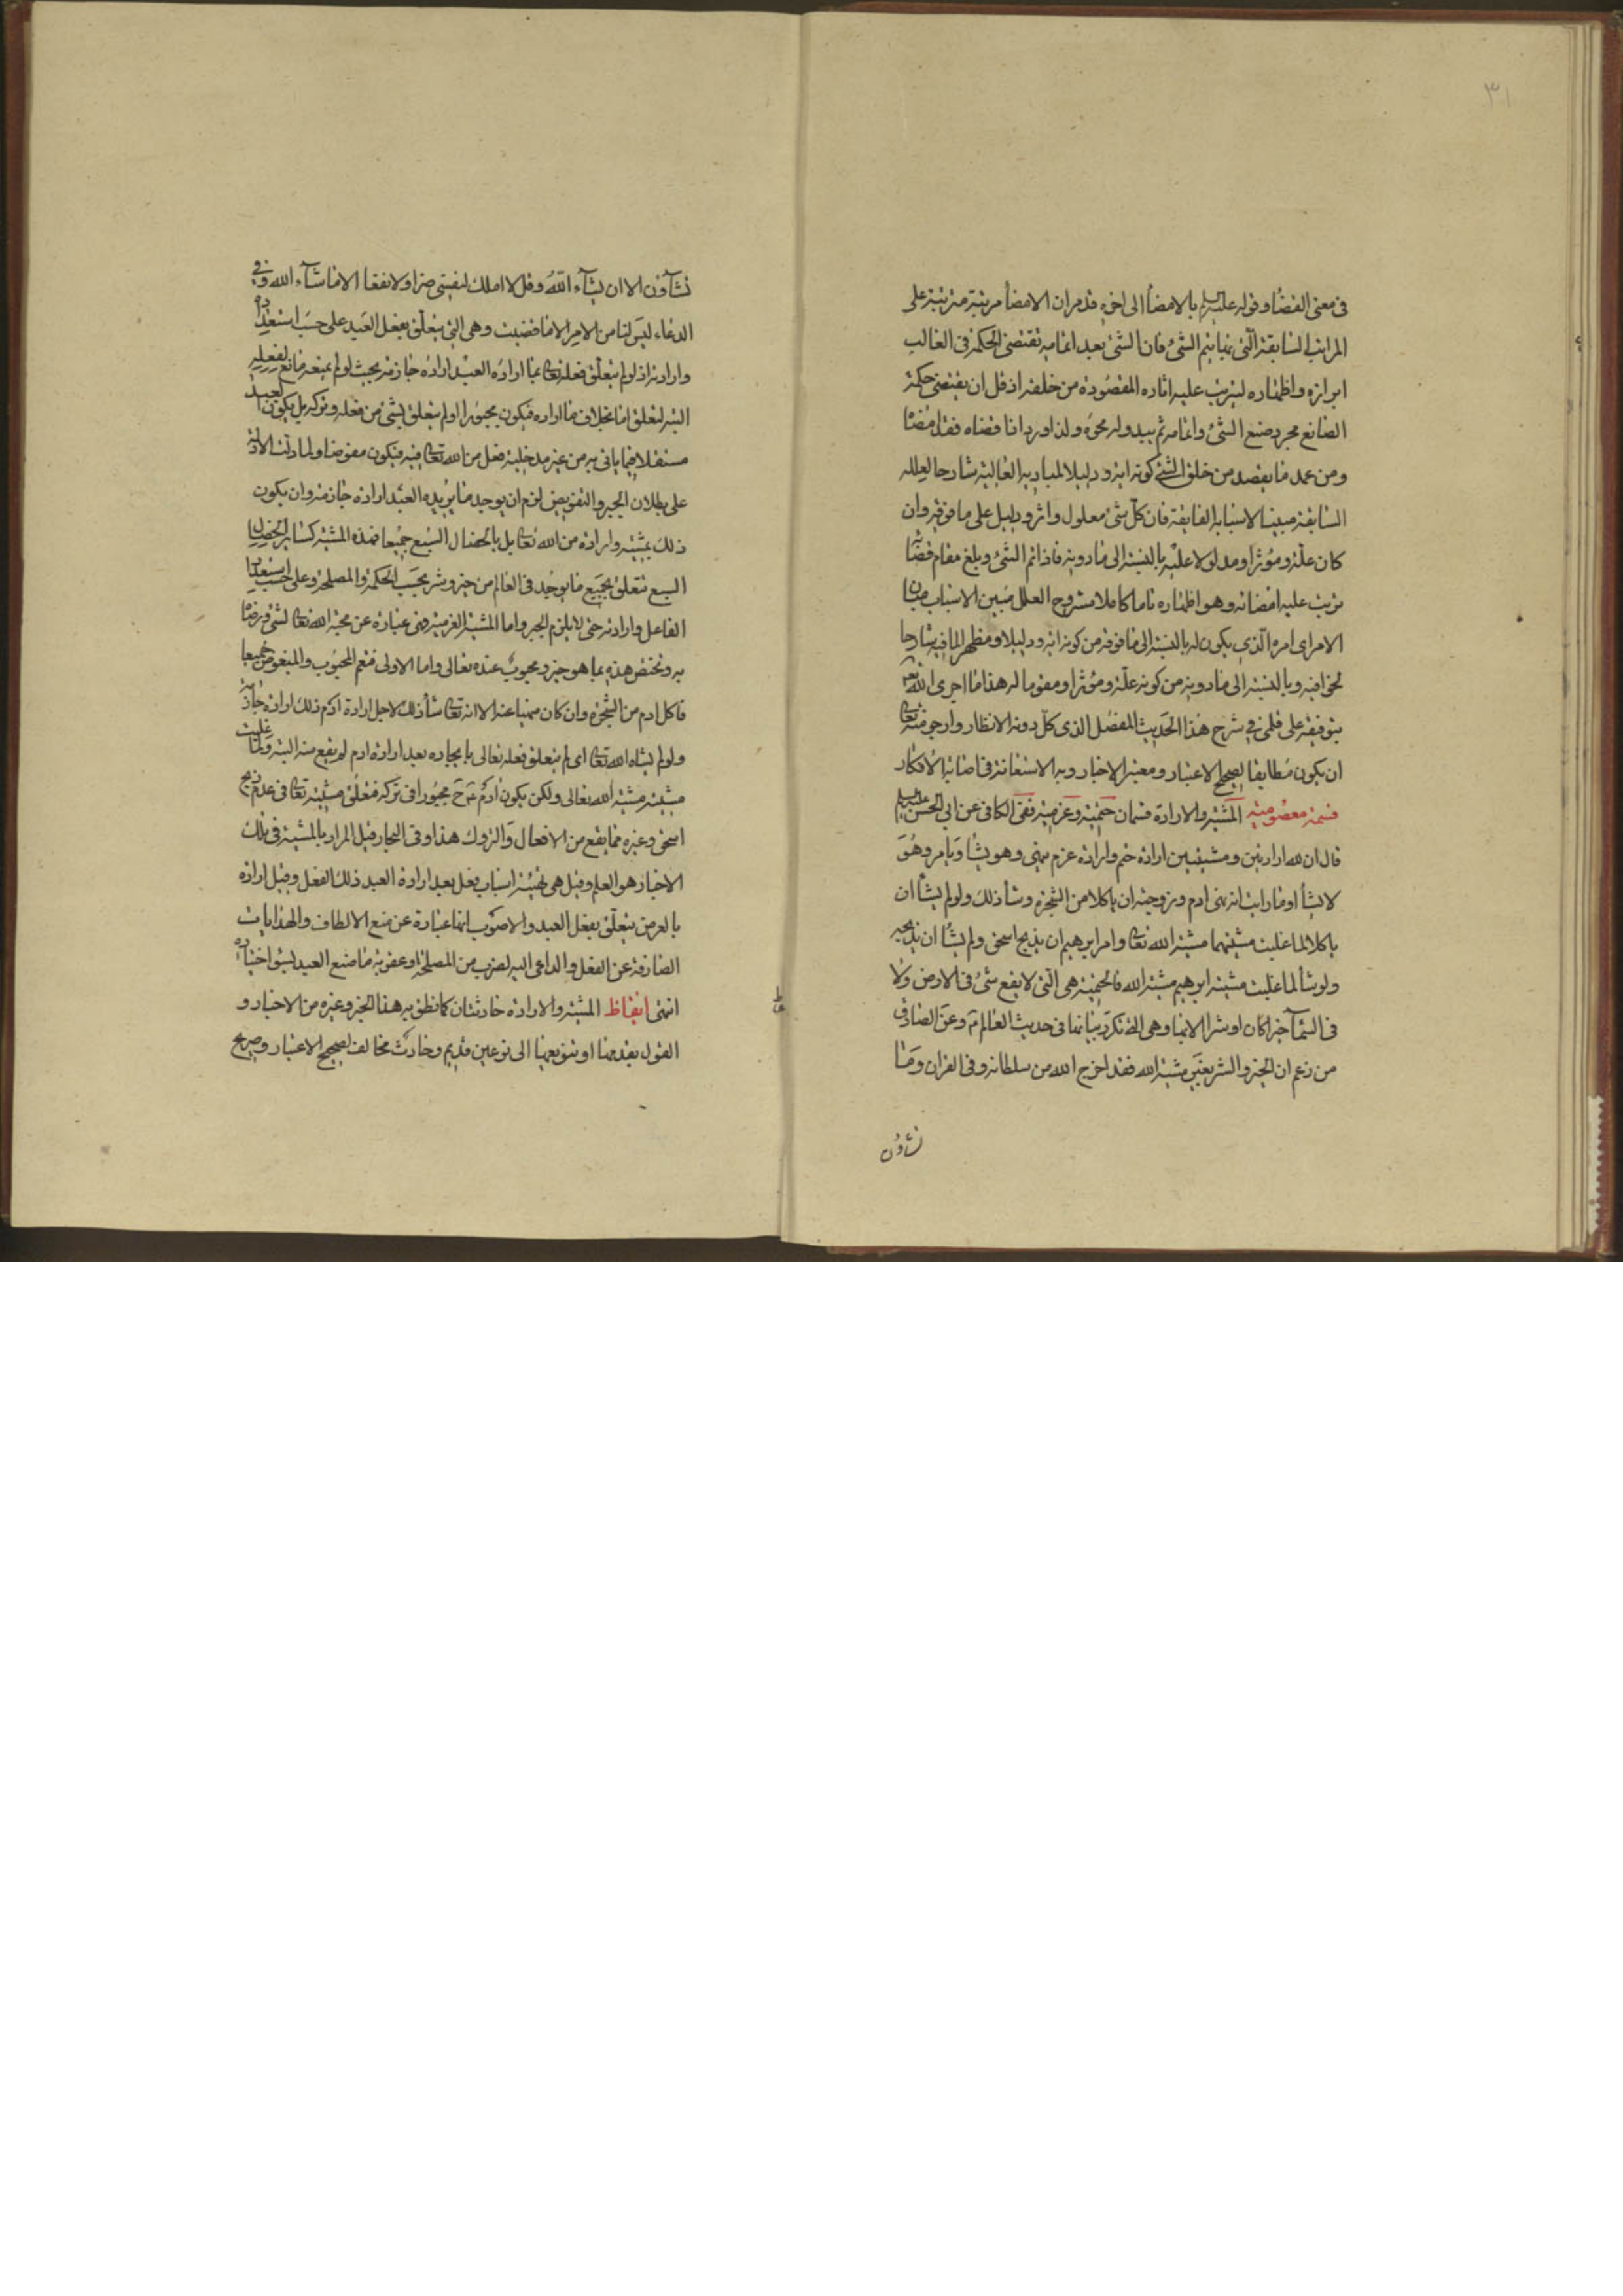 ٣١
في معنى القضاء وقوله عليه السلم بالامضاء الى اخره قد مر ان الامضاء مرتبة مترتبة على
المراتب السابقة التي بها يتم الشئ فان الشئ بعد اتمامه تقتضي الحكمة في الغالب
ابرازه واظهاره ليترتب عليه اثاره المقصودة من خلقه اذ قل ان يقتضي حكمة
الصانع مجرد صنع الشئ واتمامه ثم يبدو له محوه ولذا ورد اذا قضاه فقد امضاه
ومن عمد ما يقصد من خلق الشئ كونه اية ودليلا لمباديه العالية شارحا لعلله
السابقة مبينا لاسبابه الفايقة فان كل شئ معلول واثر ودليل على ما فوقه وان
كان علة ومؤثرا ومدلولا عليه بالنسبة الى ما دونه فاذا تم الشئ وبلغ مقام قضائه
ترتب عليه امضائه وهو اظهاره تاما كاملا مشروح العلل مبين الاسباب
الامر اى امره الذي يكون له بالنسبة الى ما فوقه من كونه اية ودليلا ومظهرا لما فيه شارحا
لخوافيه وبالنسبة الى ما دونه من كونه علة ومؤثرا ومقوما له هذا ما اجرى الله
بتوفيقه على قلمي في شرح هذا الحديث المفضل الذي كل دونه الانظار وارجو منه تعالى
ان يكون مطابقا لصحيح الاعتبار ومعتبر الاخبار وبه الاستعانة في اصابة الافكار
قسمة معصومية المشية والارادة قسمان حتمية وعزمية ففي الكافي عن ابي الحسن عليه السلم
قال ان لله ارادتين ومشيتين ارادة حتم وارادة عزم ينهى وهو يشاء ويامر وهو
لا يشاء اوما رايت انه نهى ادم وزوجته ان ياكلا من الشجرة وشاء ذلك ولو لم يشاء ان
ياكلا لما غلبت مشيتهما مشية الله تعالى وامر ابرهيم ان يذبح اسحق ولم يشاء ان يذبحه
ولو شاء لما غلبت مشية ابرهيم مشية الله فالحتمية هي التي لا يقع شئ في الارض ولا
في السماء خيرا كان او شرا الا بها وهي التي تكرر بيانها في حديث العالم ع وعن الصادق
من زعم ان الخير والشر بغير مشية الله فقد اخرج الله من سلطانه وفي القران وما
تشاؤن
تشاؤن الا ان يشاء الله وقل لا املك لنفسي ضرا ولا نفعا الا ما شاء الله وفي
الدعاء ليس لنا من الامر الا ما قضيت وهي التي يتعلق بفعل العبد على حسب استعداده
وارادته اذ لو لم يتعلق فعله تعالى بما اراده العبد ارادة جازمة بحيث لو لم يمنعه مانع لفعله
البتة لتعلق اما بخلاف ما اراده فيكون مجبورا او لم يتعلق بشئ من فعله وتركه بل يكون العبد
مستقلا فيما ياتي به من غير مدخلية فعل من الله تعالى فيه فيكون مفوضا ولما دلت الادلة
على بطلان الجبر والتفويض لزم ان يوجد ما يريده العبد ارادة جازمة وان يكون
ذلك بمشية وارادة من الله تعالى بل بالخصال السبع جميعا فهذه المشية كسائر الخصال
السبع تتعلق بجميع ما يوجد في العالم من خير وشر بحسب الحكمة والمصلحة وعلى حسب استعداد
الفاعل وارادته حتى لا يلزم الجبر واما المشية العزمية فهي عبارة عن محبة الله تعالى لشئ ورضاه
به وتختص هذه بما هو خير ومحبوب عنده تعالى واما الاولى فتعم المحبوب والمبغوض جميعا
فاكل ادم من الشجرة وان كان منهيا عنه الا انه تعالى شاء ذلك لاجل ارادة ادم ذلك ارادة جازمة
ولو لم يشاه الله تعالى اى لم يتعلق فعله تعالى بايجاده بعد ارادة ادم لم يقع منه البتة ولما غلبت
مشيته مشية الله تعالى ولكن يكون ادم ع ح مجبورا في تركه فتعلق مشيته تعالى في عدم ذبح
اسحق وغيره مما يقع من الافعال والتروك هذا وفي البحار قيل المراد بالمشية في تلك
الاخبار هو العلم وقيل هي تهيئة اسباب فعل بعد ارادة العبد ذلك الفعل وقيل ارادة
بالعرض يتعلق بفعل العبد والاصوب انها عبارة عن منع الالطاف والهدايات
الصارفة عن الفعل والداعي اليه لضرب من المصلحة او عقوبة ما صنع العبد بسوء اختياره
انتهى ايقاظ المشية والارادة حادثتان كما نطق به هذا الخبر وغيره من الاخبار و
القول بقدمهما او تنويعهما الى نوعين قديم وحادث مخالف لصحيح الاعتبار وصريح